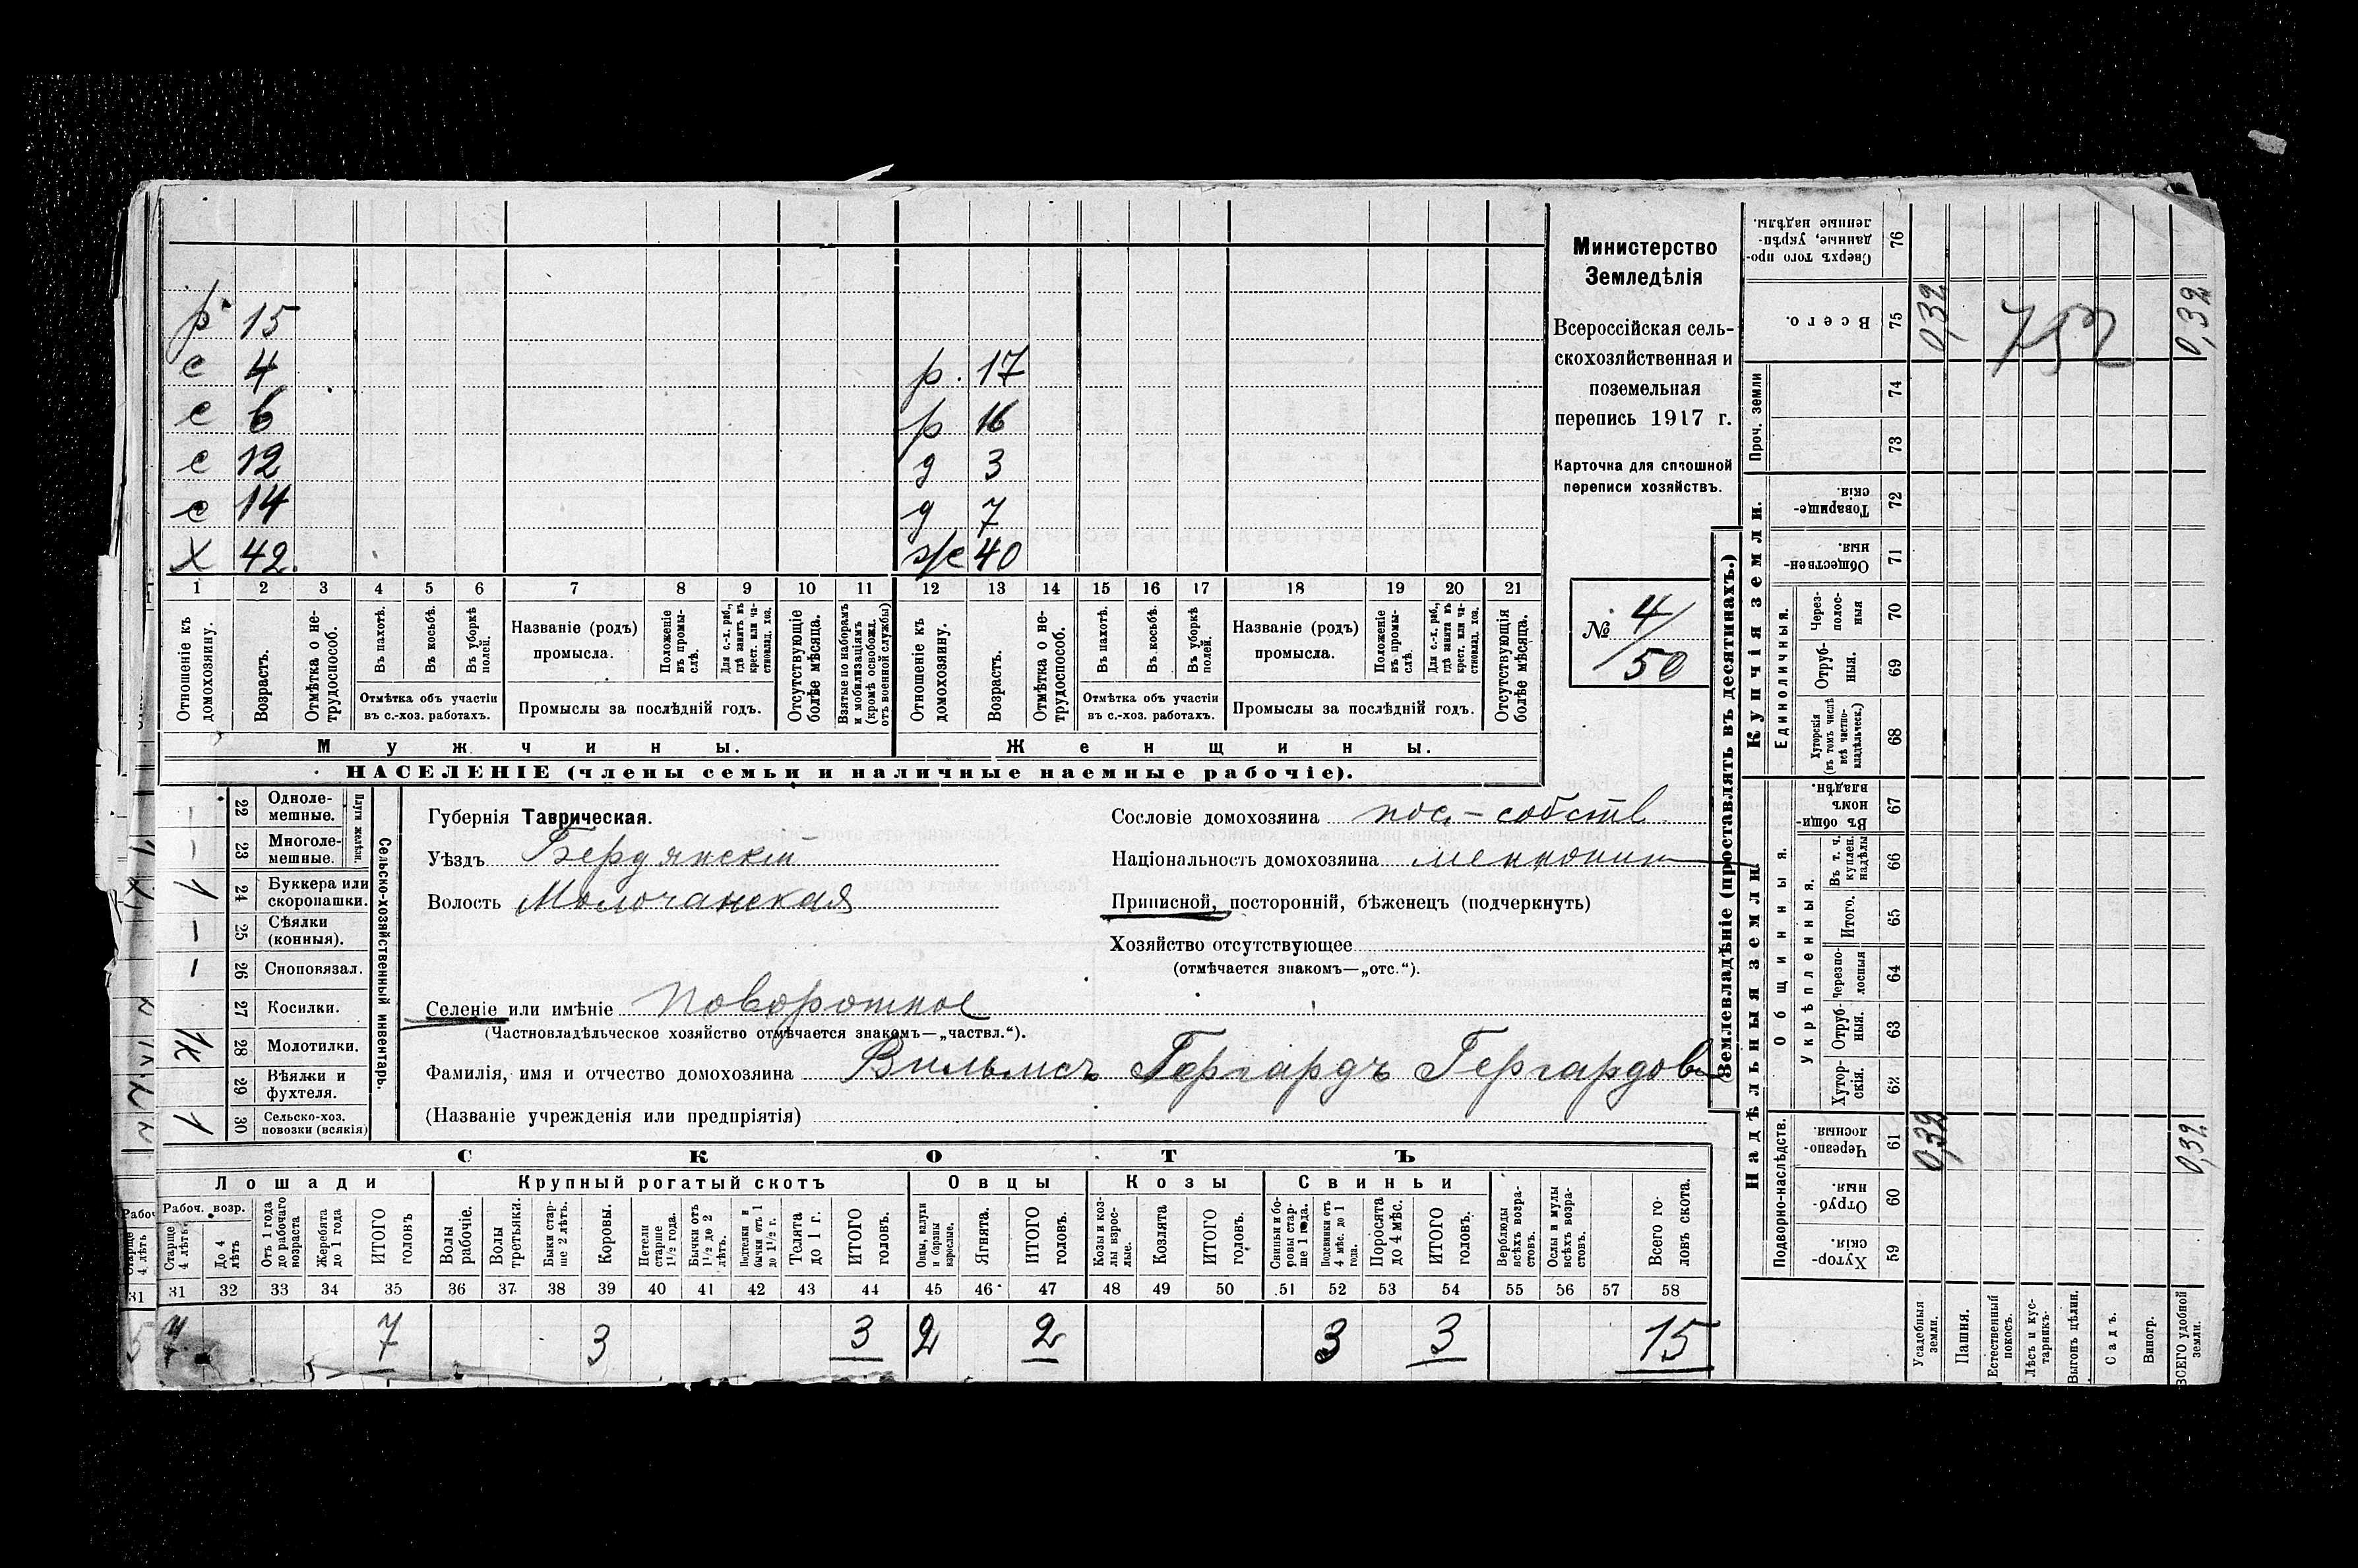 р 15
с 4
с 6
с 12
с 14
х 42.
р. 17
р 16
д 3
д 7
ж 40
1 2 3 4 5 6 7 8 9 10 11 12 13 14 15 16 17 18 19 20 21
Отношеніе къ домохозяину.
Возрастъ.
Отмѣтка о нетрудоспособ.
Въ пахотѣ.
Въ косьбѣ.
Въ уборкѣ полей.
Отмѣтка объ участіи
въ с.-хоз. работахъ.
Названіе (родъ)
промысла.
Положеніе въ промыслѣ.
Для с.-х. раб., гдѣ занятъ въ крест. или частновлад. хоз.
Промыслы за послѣдній годъ.
Отсутствующіе болѣе мѣсяца.
Взятые по наборамъ и мобилизаціямъ (кромѣ освобожд. отъ военной службы)
Отношеніе къ домохозяину.
Возрастъ.
Отмѣтка о нетрудоспособ.
Въ пахотѣ.
Въ косьбѣ.
Въ уборкѣ полей.
Отмѣтка объ участіи
въ с.-хоз. работахъ.
Названіе (родъ)
промысла.
Положеніе въ промыслѣ.
Для с.-х. раб., гдѣ занята въ крест. или частновлад. хоз.
Промыслы за послѣдній годъ.
Отсутствующія болѣе мѣсяца.
Мужчины.
Женщины.
НАСЕЛЕНІЕ (члены семьи и наличные наемные рабочіе).
Министерство
Земледѣлія
Всероссійская сель-
скохозяйственная и
поземельная
перепись 1917 г.
Карточка для сплошной
переписи хозяйствъ.
№ 4/50
Плуги желѣзн.
– 22 Одноле-
мешные.
– 23 Многоле-
мешные.
1 24 Буккера или
скоропашки.
– 25 Сѣялки
(конныя).
– 26 Сноповязал.
27 Косилки.
1к 28 Молотилки.
29 Вѣялки и
фухтеля.
1 30 Сельско-хоз.
повозки (всякія)
Сельско-хозяйственный инвентарь.
Губернія Таврическая.
Уѣздъ Бердянскій
Волость Молочанская
Селеніе или имѣніе Поворотное
(Частновладѣльческое хозяйство отмѣчается знакомъ—„частвл.“).
Фамилія, имя и отчество домохозяина Вильмсъ Гергардъ Гергардов
(Названіе учрежденія или предпріятія)
Сословіе домохозяина пос.-собств.
Національность домохозяина меннонит
Приписной, посторонній, бѣженецъ (подчеркнуть)
Хозяйство отсутствующее
(отмѣчается знакомъ—„отс.“).
СКОТЪ
Лошади
Крупный рогатый скотъ
Овцы
Козы
Свиньи
Рабоч. возр.
Старше 4 лѣтъ
До 4 лѣтъ
Отъ 1 года до рабочаго возраста
Жеребята до 1 года
ИТОГО головъ
Волы рабочіе.
Волы третьяки.
Быки старше 2 лѣтъ.
Коровы.
Нетели старше 1½ года.
Бычки отъ 1½ до 2 лѣтъ.
Подтелки и бычки отъ 1 до 1½ г.
Телята до 1 г.
ИТОГО головъ.
Овцы, валухи и бараны взрослые.
Ягнята.
ИТОГО головъ.
Козы и козлы взрослые.
Козлята
ИТОГО головъ.
Свиньи и боровы старше 1 года.
Подсвинки отъ 4 мѣс. до 1 года.
Поросята до 4 мѣс.
ИТОГО головъ.
Верблюды всѣхъ возрастовъ.
Ослы и мулы всѣхъ возрастовъ.
Всего головъ скота.
31 31 32 33 34 35 36 37 38 39 40 41 42 43 44 45 46 47 48 49 50 51 52 53 54 55 56 57 58
7 3 3 2 2 3 3 15
Землевладѣніе (проставлять въ десятинахъ.)
Надѣльныя земли.
Купчія земли.
Проч. земли
Подворно-наслѣдств.
Общинныя.
Укрѣпленныя.
Единоличныя.
Сверхъ того проданные, укрѣпленные надѣлы. 76
Всего. 75 0,32 752 0,32
74
73
Товарищескія. 72
Общественныя. 71
Черезполосныя 70
Отрубныя. 69
Хуторскія (въ томъ числѣ всѣ частновладѣльческ.) 68
Въ общинномъ владѣн. 67
Въ т. ч. куплен. надѣлы 66
Итого. 65
Черезполосныя 64
Отрубныя. 63
Хуторскія. 62
Черезполосныя. 61 0,32 0,32
Отрубныя. 60
Хуторскія. 59
Усадебныя земли.
Пашня.
Естественный покосъ.
Лѣсъ и кустарникъ.
Выгонъ цѣлин.
Садъ.
Виногр.
ВСЕГО удобной земли.